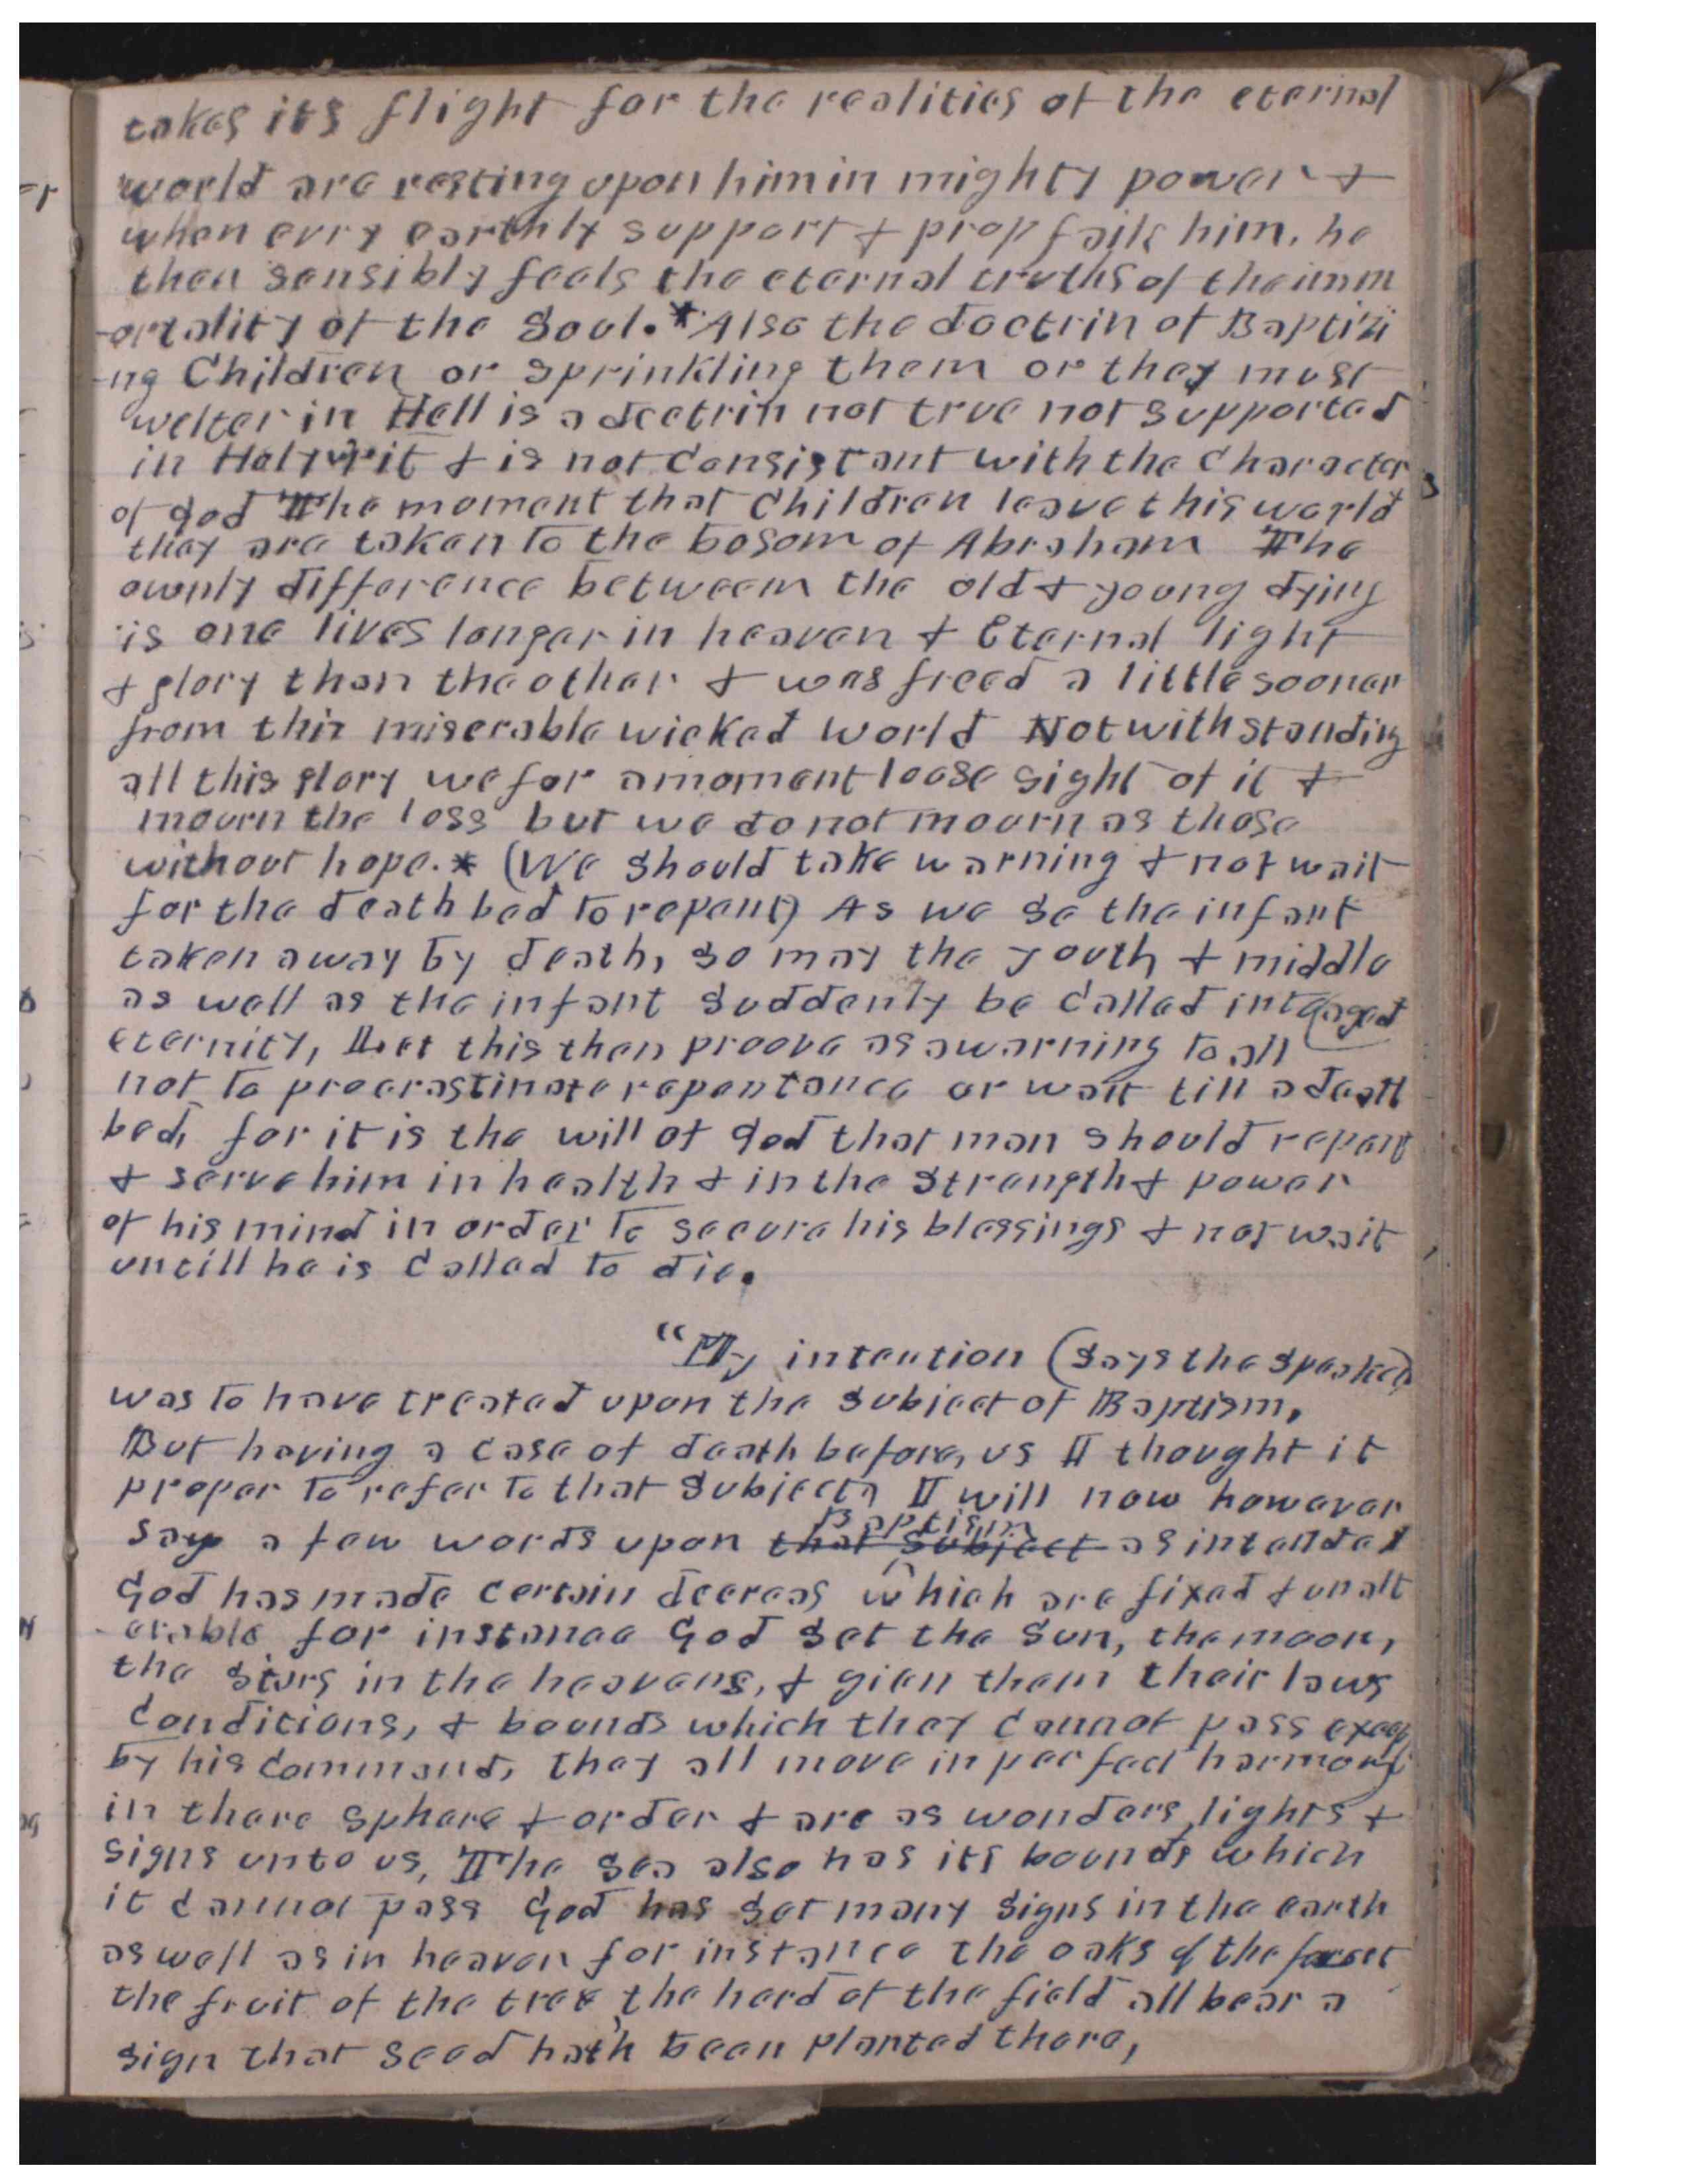 takes its flight for the realities of the eternal
world are resting upon him in mighty power &
when evry earthly support & prop fails him, he
then sensibly feels the eternal truths of the imm
-ortality of the Soul.* Also the doctrin of Baptizi
-ng Children or sprinkling them or they must
welter in Hell is a doctrin not true not supported
in Holy writ & is not consistant with the character
of god The moment that children leave this world
they are taken to the bosom of Abraham The
ownly difference betweem the old & young dying
is one lives longer in heaven & Eternal light
& glory than the other & was freed a little sooner
from this miserable wicked world Notwithstanding
all this glory we for a moment loose sight of it &
mourn the loss but we do not mourn as those
without hope.* (We should take warning & not wait
for the death bed to repent) As we se the infant
taken away by death, so may the youth & middle
as well as the infant suddenly be called into (aged
eternity, Let this then proove as a warning to all
not to procrastinate repentance or wait till a death
bed, for it is the will of god that man should repent
& serve him in health & in the strength & power
of his mind in order to secure his blessings & not wait
untill he is called to die.
"My intention (says the speaker)
was to have treated upon the subject of Baptism,
But having a case of death before, us I thought it
proper to refer to that subject, I will now however
Baptism
say a few words upon that subject as intended
God has made certain decrees which are fixed & unalt
erable for instance God set the sun, the moon,
the stars in the heavens, & gien them their laws
conditions, & bounds which they cannot pass excep
by his command, they all move in perfect harmony
in there sphere & order & are as wonders, lights &
signs unto us, The sea also has its bounds which
it cannot pass God has set many signs in the earth
as well as in heaven for instance the oaks of the forest
the fruit of the tree, the herd of the field all bear a
sign that seed hath been planted there,